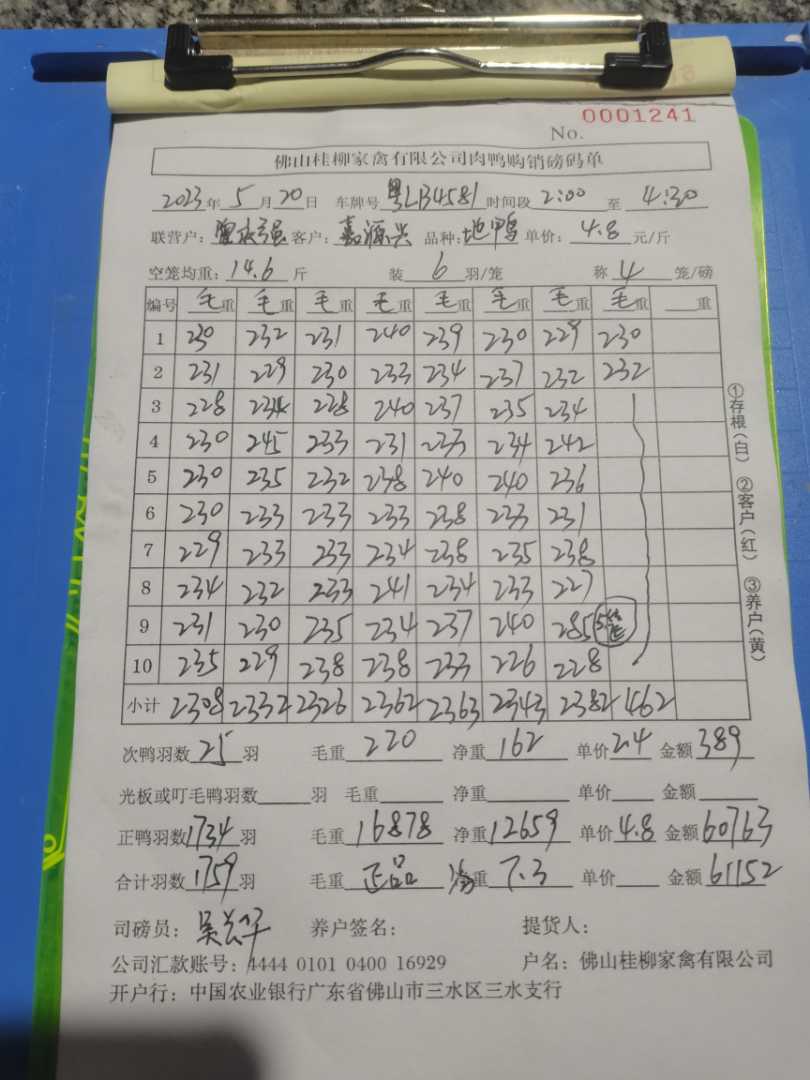 No. 0001241
佛山桂柳家禽有限公司肉鸭购销磅码单
2023年5月20日 车牌号粤LB4581时间段2:00至4:30
联营户： 客户：嘉源兴 品种：地鸭 单价：4.8元/斤
空笼均重：14.6斤 装6羽/笼 称4笼/磅
编号 毛重 毛重 毛重 毛重 毛重 毛重 毛重 毛重 重
1 230 232 231 240 239 230 229 230
2 231 229 230 233 234 237 232 232
3 228 234 228 240 237 235 234
4 230 245 233 231 233 234 242
5 230 235 232 238 240 240 236
6 230 233 233 233 238 233 231
7 229 233 233 234 238 235 238
8 234 232 233 241 234 233 227
9 231 230 235 234 237 240 285
10 235 229 238 238 233 226 228
小计 2308 2332 2326 2362 2363 2343 2382 462
次鸭羽数25羽 毛重220 净重162 单价2.4 金额389
光板或叮毛鸭羽数 羽 毛重 净重 单价 金额
正鸭羽数1734羽 毛重16878 净重12659 单价4.8 金额60763
合计羽数1759羽 毛重正品 重7.3 单价 金额61152
司磅员：吴兴华 养户签名： 提货人：
公司汇款账号：4444 0101 0400 16929 户名：佛山桂柳家禽有限公司
开户行：中国农业银行广东省佛山市三水区三水支行
①存根（白） ②客户（红） ③养户（黄）